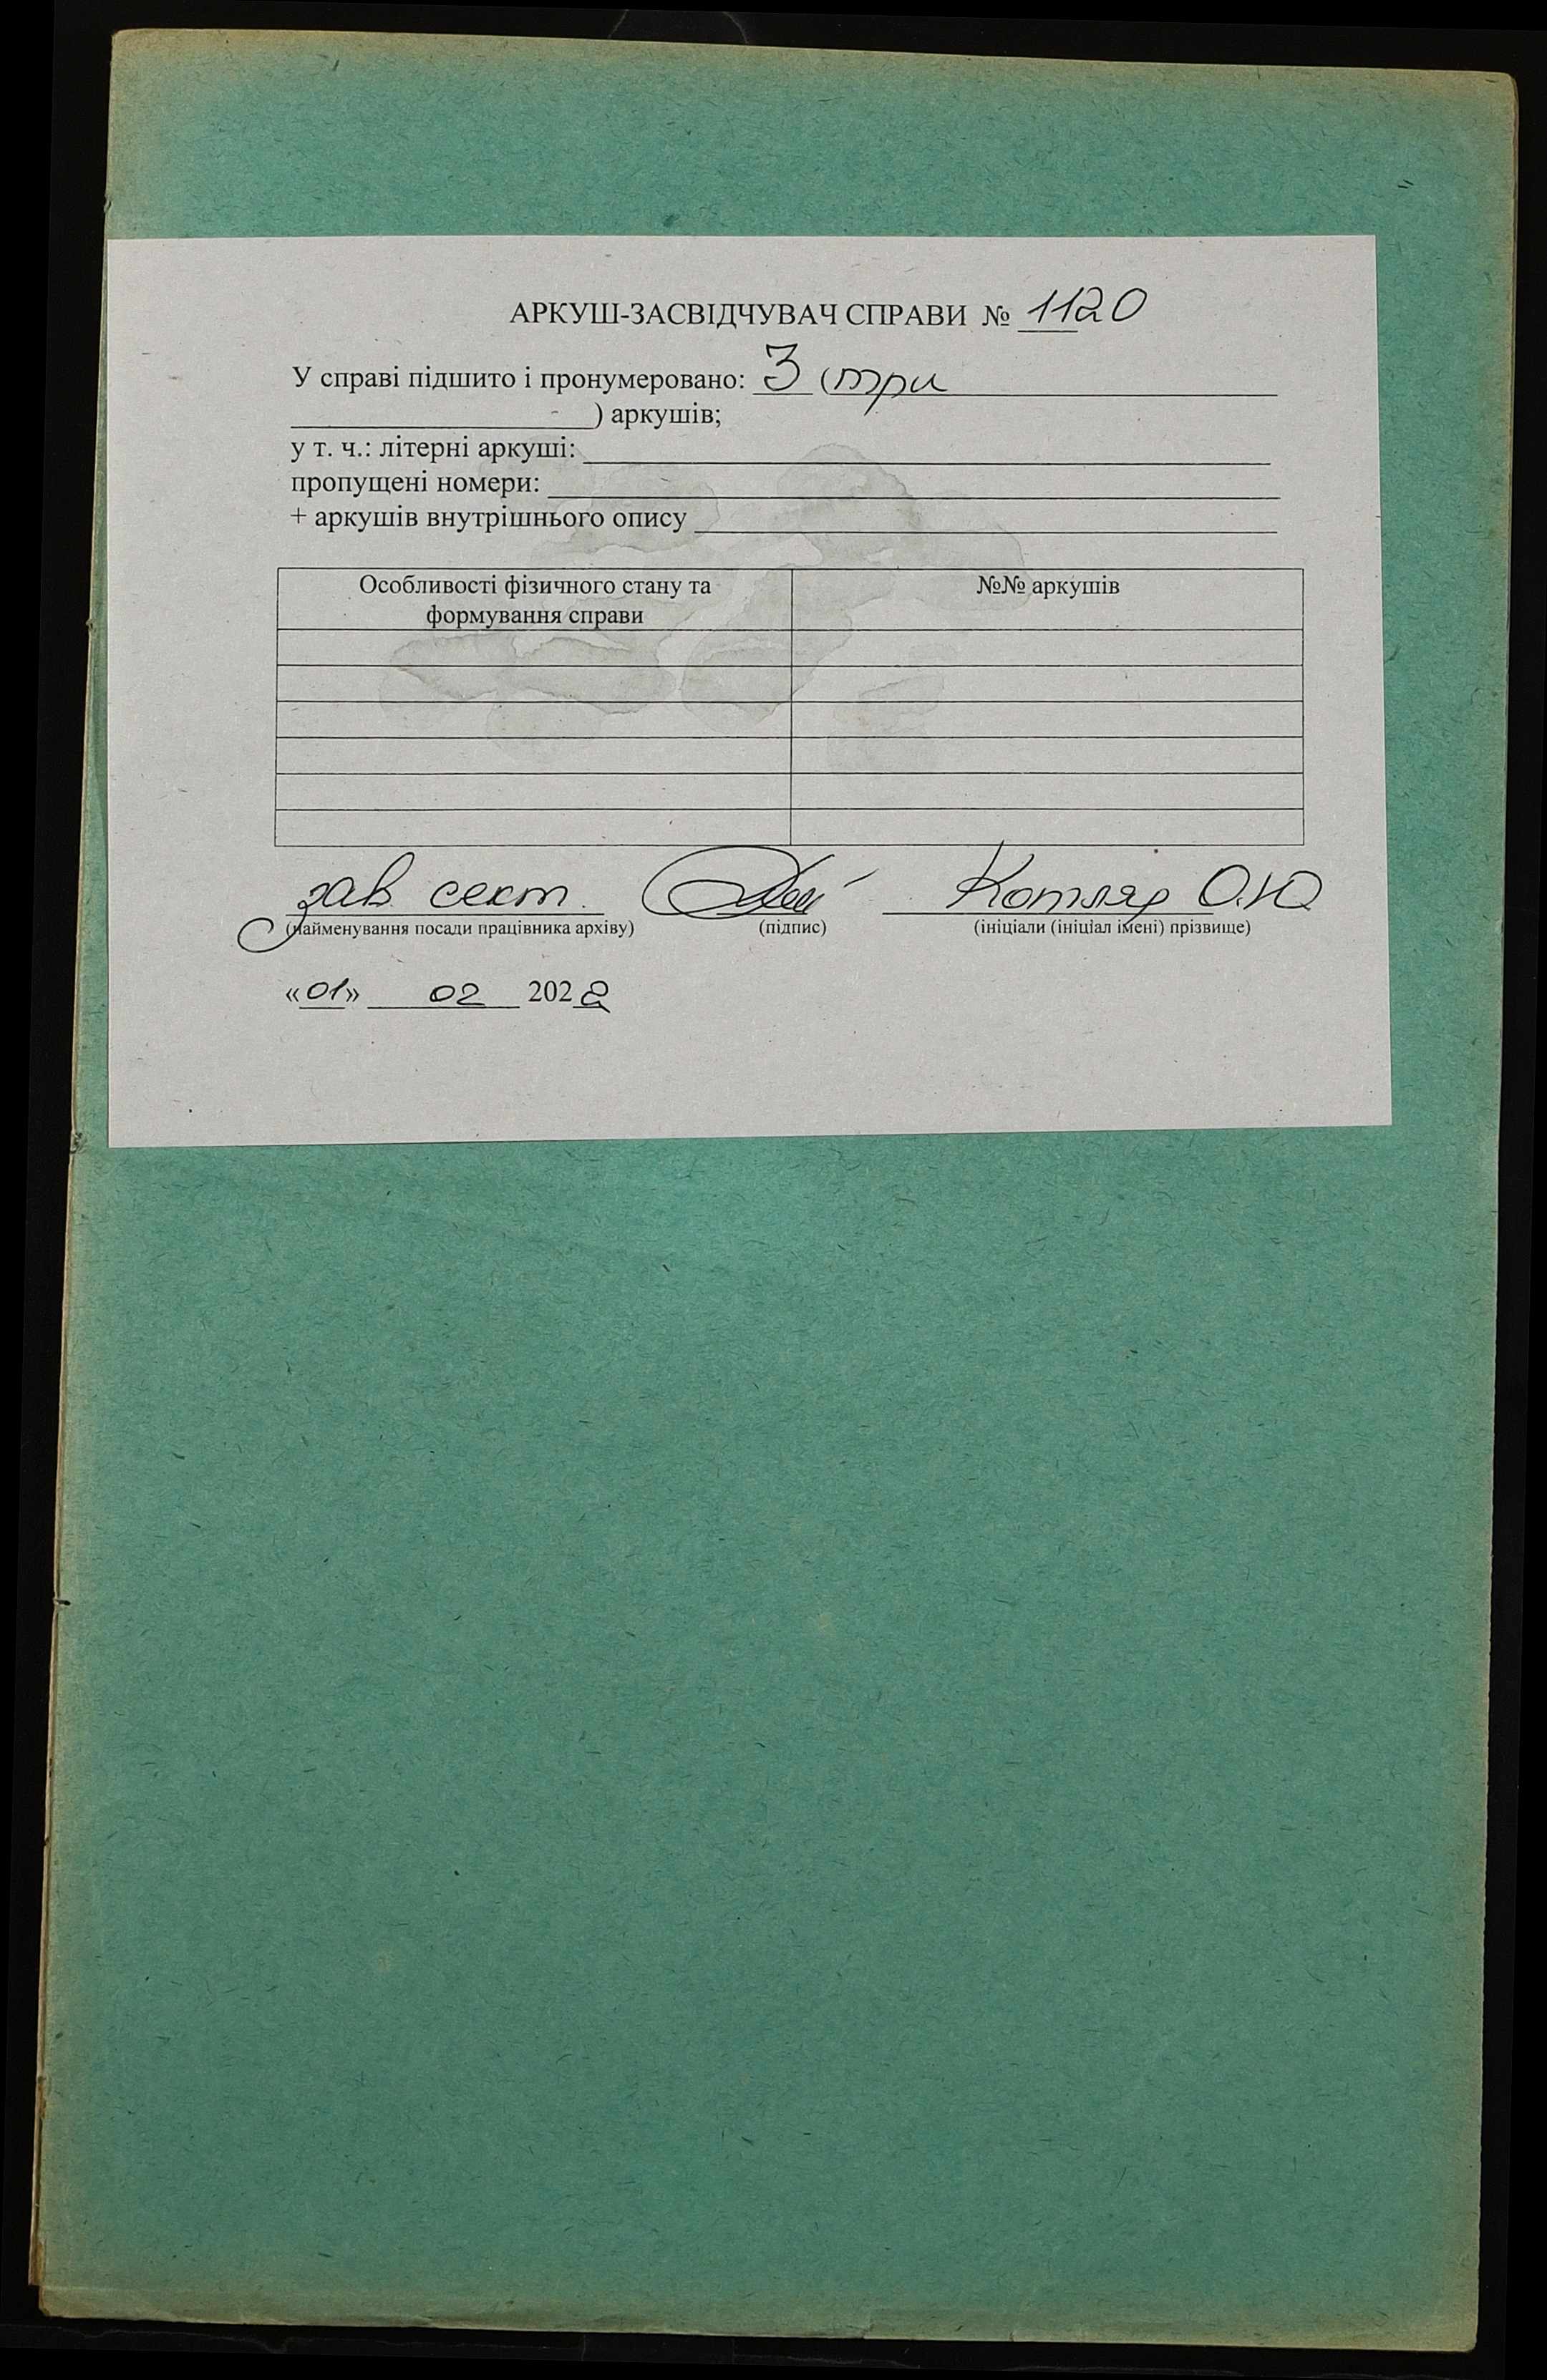 АРКУШ-ЗАСВІДЧУВАЧ СПРАВИ № 1120
У справі підшито і пронумеровано: 3 (три
) аркушів;
у т. ч.: літерні аркуші:
пропущені номери:
+ аркушів внутрішнього опису
Особливості фізичного стану та формування справи №№ аркушів
зав. сект. Котляр О.Ю
(найменування посади працівника архіву) (підпис) (ініціали (ініціал імені) прізвище)
«01» 02 2022